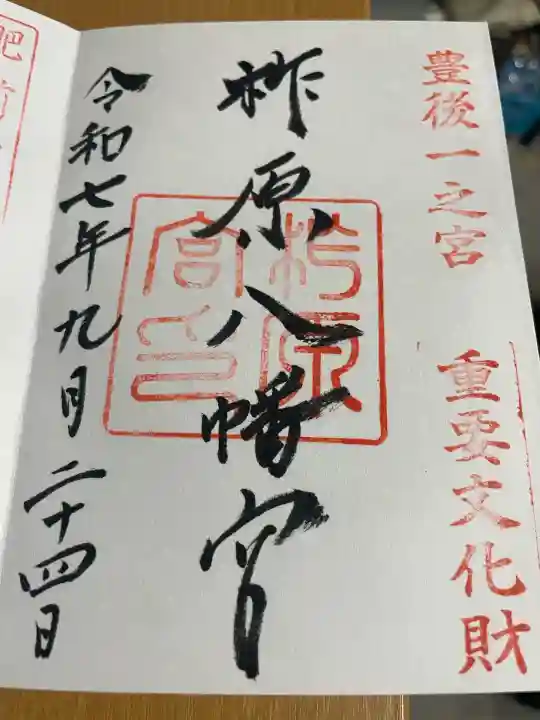 豊後一之宮
重要文化財
柞原八幡宮
柞原
宮印
令和七年九月二十四日
肥前